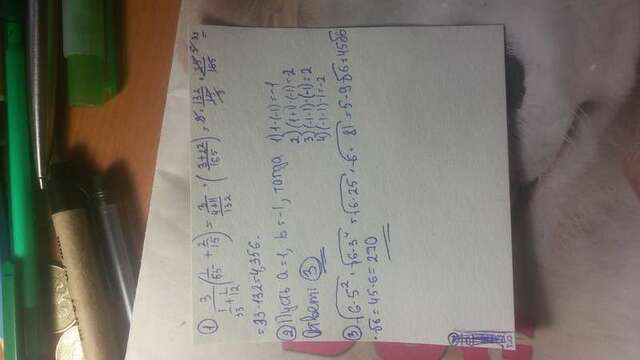 ① 3/(1/33+1/12) (1/65 + 2/15) = 3/((4+11)/132) · (3+22/165) = 8 · 132/15 · 25/165 =
= 33·132 = 4,356.
② Пусть a=1, b=-1, тогда
1) 1·(-1) = -1
2) (1+1)·(-1) = 2
Ответ: ③
3) (-1-1)·(-1) = 2
4) (-1-1)·1 = -2
③ √6·5² · √6·3⁴ = √6·25 · √6·81 = 5·9√6 = 45√6
·√6 = 45·6 = 270